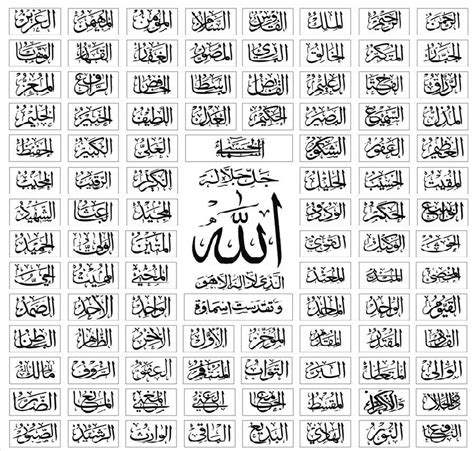 الرحمن الرحيم الملك القدوس السلام المؤمن المهيمن العزيز
الجبار المتكبر الخالق البارئ المصور الغفار القهار الوهاب
الرزاق الفتاح العليم القابض الباسط الخافض الرافع المعز
المذل السميع البصير الحكم العدل اللطيف الخبير الحليم
العظيم الغفور الشكور العلي الكبير الحفيظ
المقيت الحسيب الجليل الكريم الرقيب المجيب
الواسع الحكيم الودود المجيد الباعث الشهيد
الحق الوكيل القوي المتين الولي الحميد
المحصي المبدئ المعيد المحيي المميت الحي
القيوم الواجد الماجد الواحد الأحد الصمد
جل جلاله
الله
الذي لا إله إلا هو
وتقدست أسماؤه
القادر المقتدر المقدم المؤخر الأول الآخر الظاهر الباطن
الوالي المتعالي البر التواب المنتقم العفو الرؤوف مالك الملك
ذو الجلال والإكرام المقسط الجامع الغني المغني المانع الضار
النافع النور الهادي البديع الباقي الوارث الرشيد الصبور